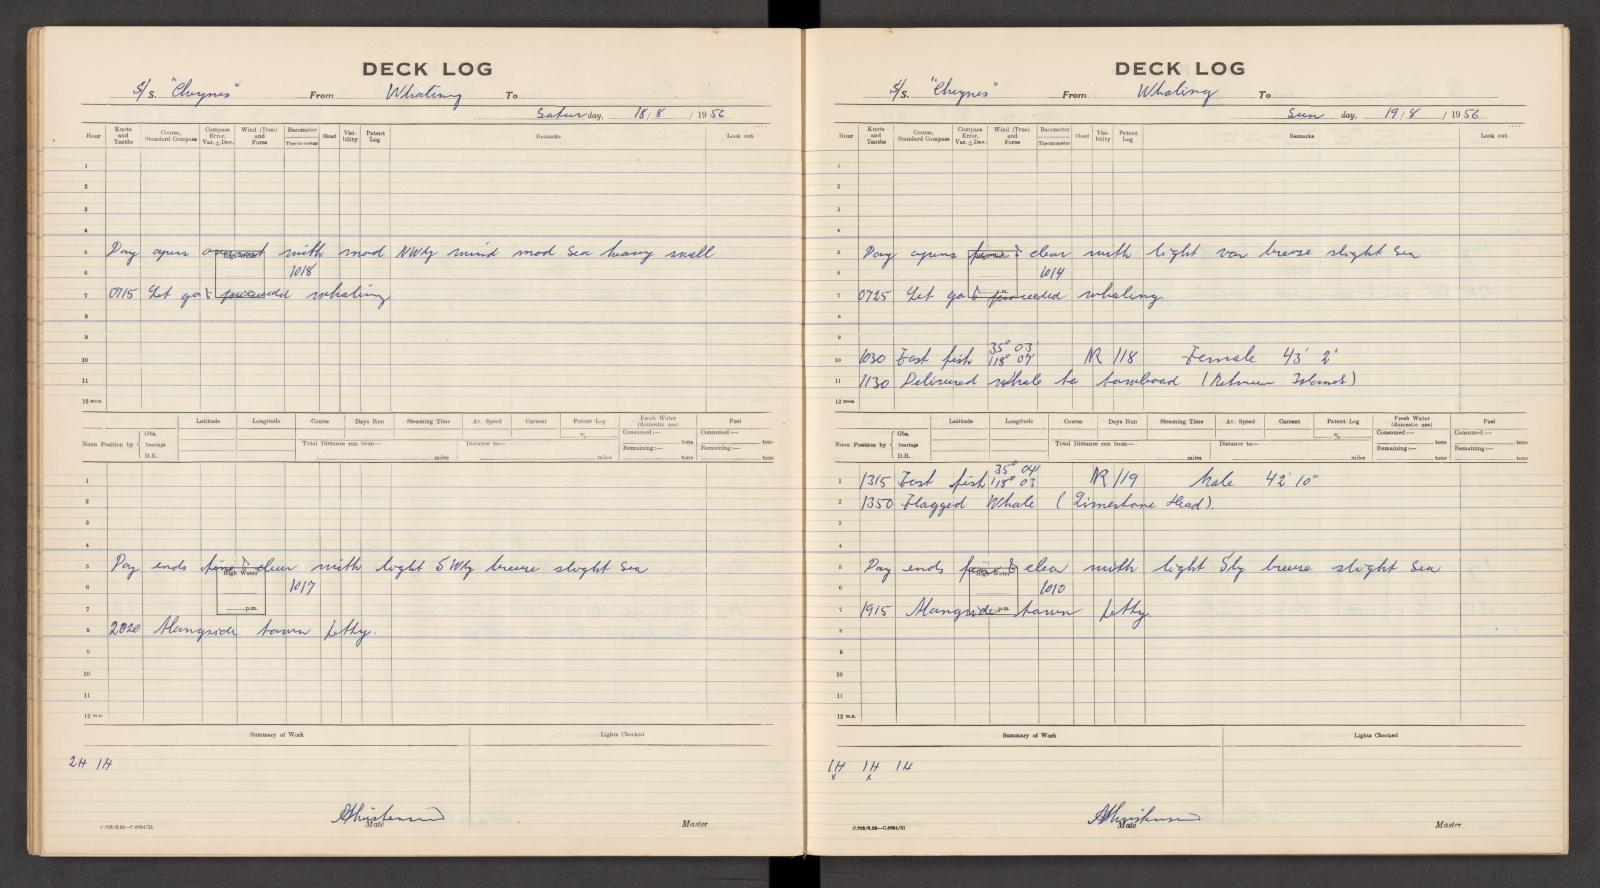 DECK LOG
S/S. "Cheynes" From Whaling To
Satur day, 18/8 / 1956
Hour Knots and Tenths Course, Standard Compass Compass Error. Var. ± Dev. Wind (True) and Force Barometer Thermometer Cloud Visibility Patent Log Remarks Look out
1
2
3
4
5 Day opens overcast with mod NWly wind mod sea heavy swell
6 1018
7 0715 Let go & proceeded whaling
8
9
10
11
12 noon
Latitude Longitude Course Days Run Steaming Time Av. Speed Current Patent Log Fresh Water (domestic use) Fuel
% Consumed:— tons Consumed:— tons
Noon Position by { Obs. Bearings D.R. Total Distance run from— miles Distance to— miles Remaining:— tons Remaining:— tons
1
2
3
4
5 Day ends fine & clear with light SWly breeze slight sea
High Water
6 1017
7 p.m.
8 2020 Alongside town jetty.
9
10
11
12 m.n.
Summary of Work Lights Checked
2H 1H
AChristensen
Mate Master
C.702/8.52—C.6654/51
DECK LOG
S/S. "Cheynes" From Whaling To
Sun day, 19/8 / 1956
Hour Knots and Tenths Course, Standard Compass Compass Error. Var. ± Dev. Wind (True) and Force Barometer Thermometer Cloud Visibility Patent Log Remarks Look out
1
2
3
4
5 Day opens fine & clear with light var breeze slight sea
6 1014
7 0725 Let go & proceeded whaling.
8
9
35° 03'
10 1030 Fast fish 118° 07' NR 118 Female 43' 2"
11 1130 Delivered whale to towboat ( Islands)
12 noon
Latitude Longitude Course Days Run Steaming Time Av. Speed Current Patent Log Fresh Water (domestic use) Fuel
% Consumed:— tons Consumed:— tons
Noon Position by { Obs. Bearings D.R. Total Distance run from— miles Distance to— miles Remaining:— tons Remaining:— tons
35° 04'
1 1315 Fast fish 118° 03 NR 119 Male 42' 10"
2 1350 Flagged Whale (Limestone Head).
3
4
5 Day ends fine & clear with light Sly breeze slight sea
High Water
6 1010
7 1915 Alongside town jetty. p.m.
8
9
10
11
12 m.n.
Summary of Work Lights Checked
1H 1H 1H
x x
AChristensen
Mate Master
C.702/8.52—C.6654/51